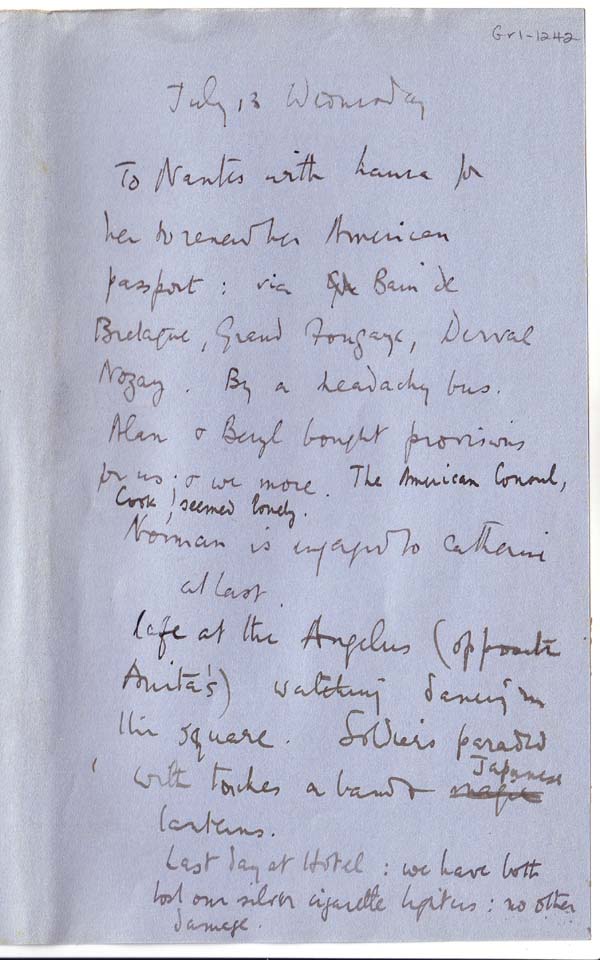 Gr1-1242
July 13 Wednesday
To Nantes with Laura for
her to renew her American
passport : via Bain de
Bretagne, Grand Fougaye, Derval
Nozay. By a headachy bus.
Alan & Beryl bought provisions
for us ; & we more. The American Consul,
Cook, seemed lonely.
Norman is engaged to Catherine
at last.
Cafe at the Angelus (opposite
Anita's) watching dancing in
the square. Soldiers paraded
Japanese
with torches a band & magic
lanterns.
Last day at Hotel : we have both
lost our silver cigarette lighters : no other
damage.